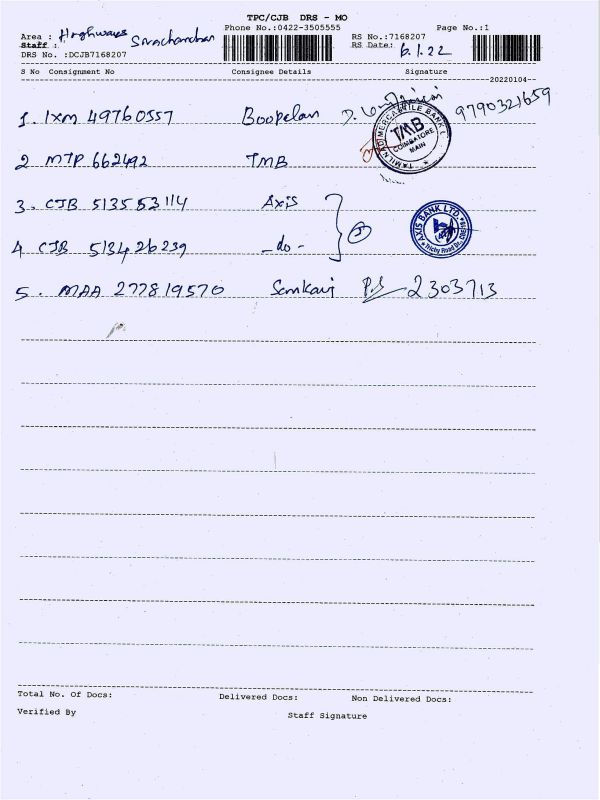 TPC/CJB DRS - MO
Phone No.:0422-3505555 Page No.:1
Area : Highways RS No.:7168207
Staff : RS Date: 6.1.22
DRS No. :DCJB7168207
S No Consignment No Consignee Details Signature
20220104
1. IXM 49760557 Boopelan D. 9790321659
TAMILNAD MERCANTILE BANK L TMB COIMBATORE MAIN
2 MTP 662492 TMB
3. CJB 513553114 Axis
AXIS BANK LTD. Trichy Road Br.
4 CJB 513426239 -do-
5. MAA 277819570 Sankari P.S 2303713
Total No. Of Docs: Delivered Docs: Non Delivered Docs:
Verified By Staff Signature